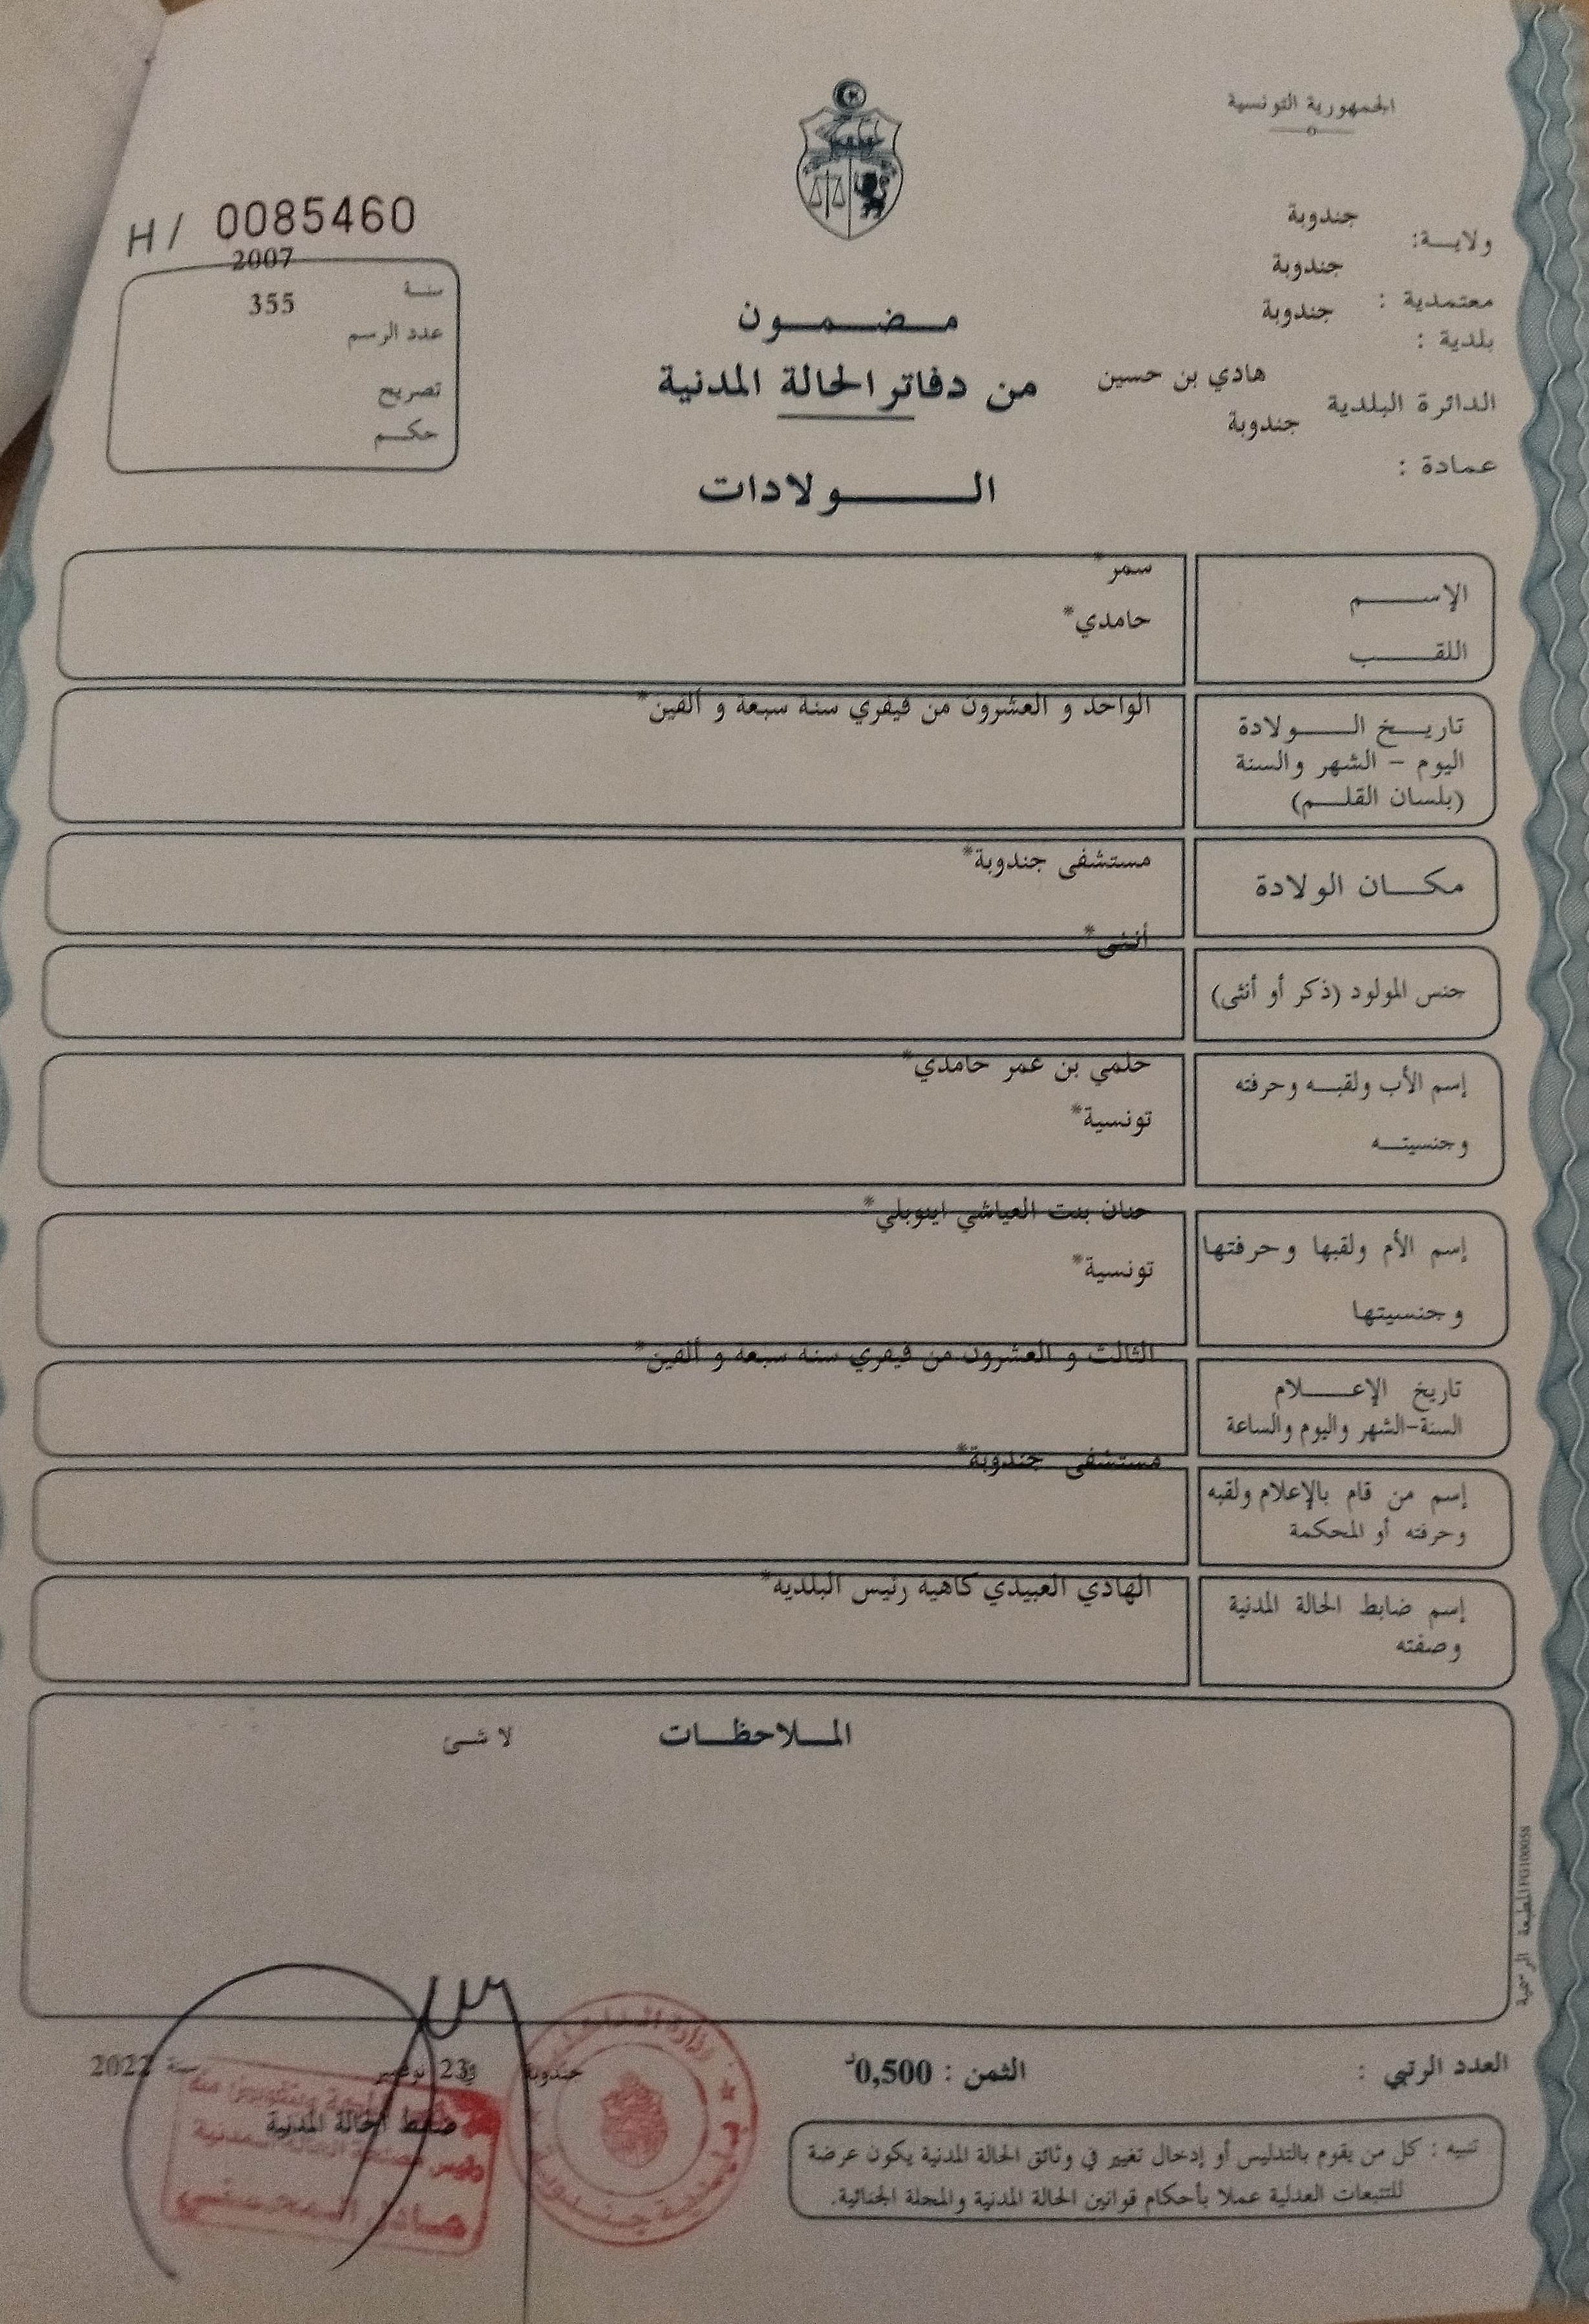 الجمهورية التونسية
ولايـــة: جندوبة
معتمدية : جندوبة
بلدية : جندوبة
الدائرة البلدية هادي بن حسين
عمادة : جندوبة
H/ 0085460
سنـة 2007
عدد الرسم 355
تصريح
حكـم
مـضـمـون
من دفاتر الحالة المدنية
الـولادات
الإســم سمر*
اللقـب حامدي*
تاريـخ الـولادة
اليوم - الشهر والسنة
(بلسان القلـم)
الواحد و العشرون من فيفري سنة سبعة و ألفين*
مكـان الولادة مستشفى جندوبة*
جنس المولود (ذكر أو أنثى) أنثى*
إسم الأب ولقبـه وحرفته حلمي بن عمر حامدي*
وجنسيتـه تونسية*
إسم الأم ولقبها وحرفتها حنان بنت العياشي
وجنسيتها تونسية*
تاريخ الإعـلام
السنة-الشهر واليوم والساعة
الثالث و العشرون من فيفري سنة سبعة و ألفين*
إسم من قام بالإعلام ولقبه
وحرفته أو المحكمة
مستشفى جندوبة*
إسم ضابط الحالة المدنية
وصفته
الهادي العبيدي كاهية رئيس البلدية*
المـلاحظـات لا شئ
المطبعة الرسمية
العدد الرتبي :
الثمن : 0,500د
جندوبة في 23 نوفمبر سنة 2022
ضابط الحالة المدنية
رئيس مصلحة الحالة المدنية
وزارة الداخلية
بلدية جندوبة
تنبيه : كل من يقوم بالتدليس أو إدخال تغيير في وثائق الحالة المدنية يكون عرضة
للتتبعات العدلية عملا بأحكام قوانين الحالة المدنية والمجلة الجنائية.